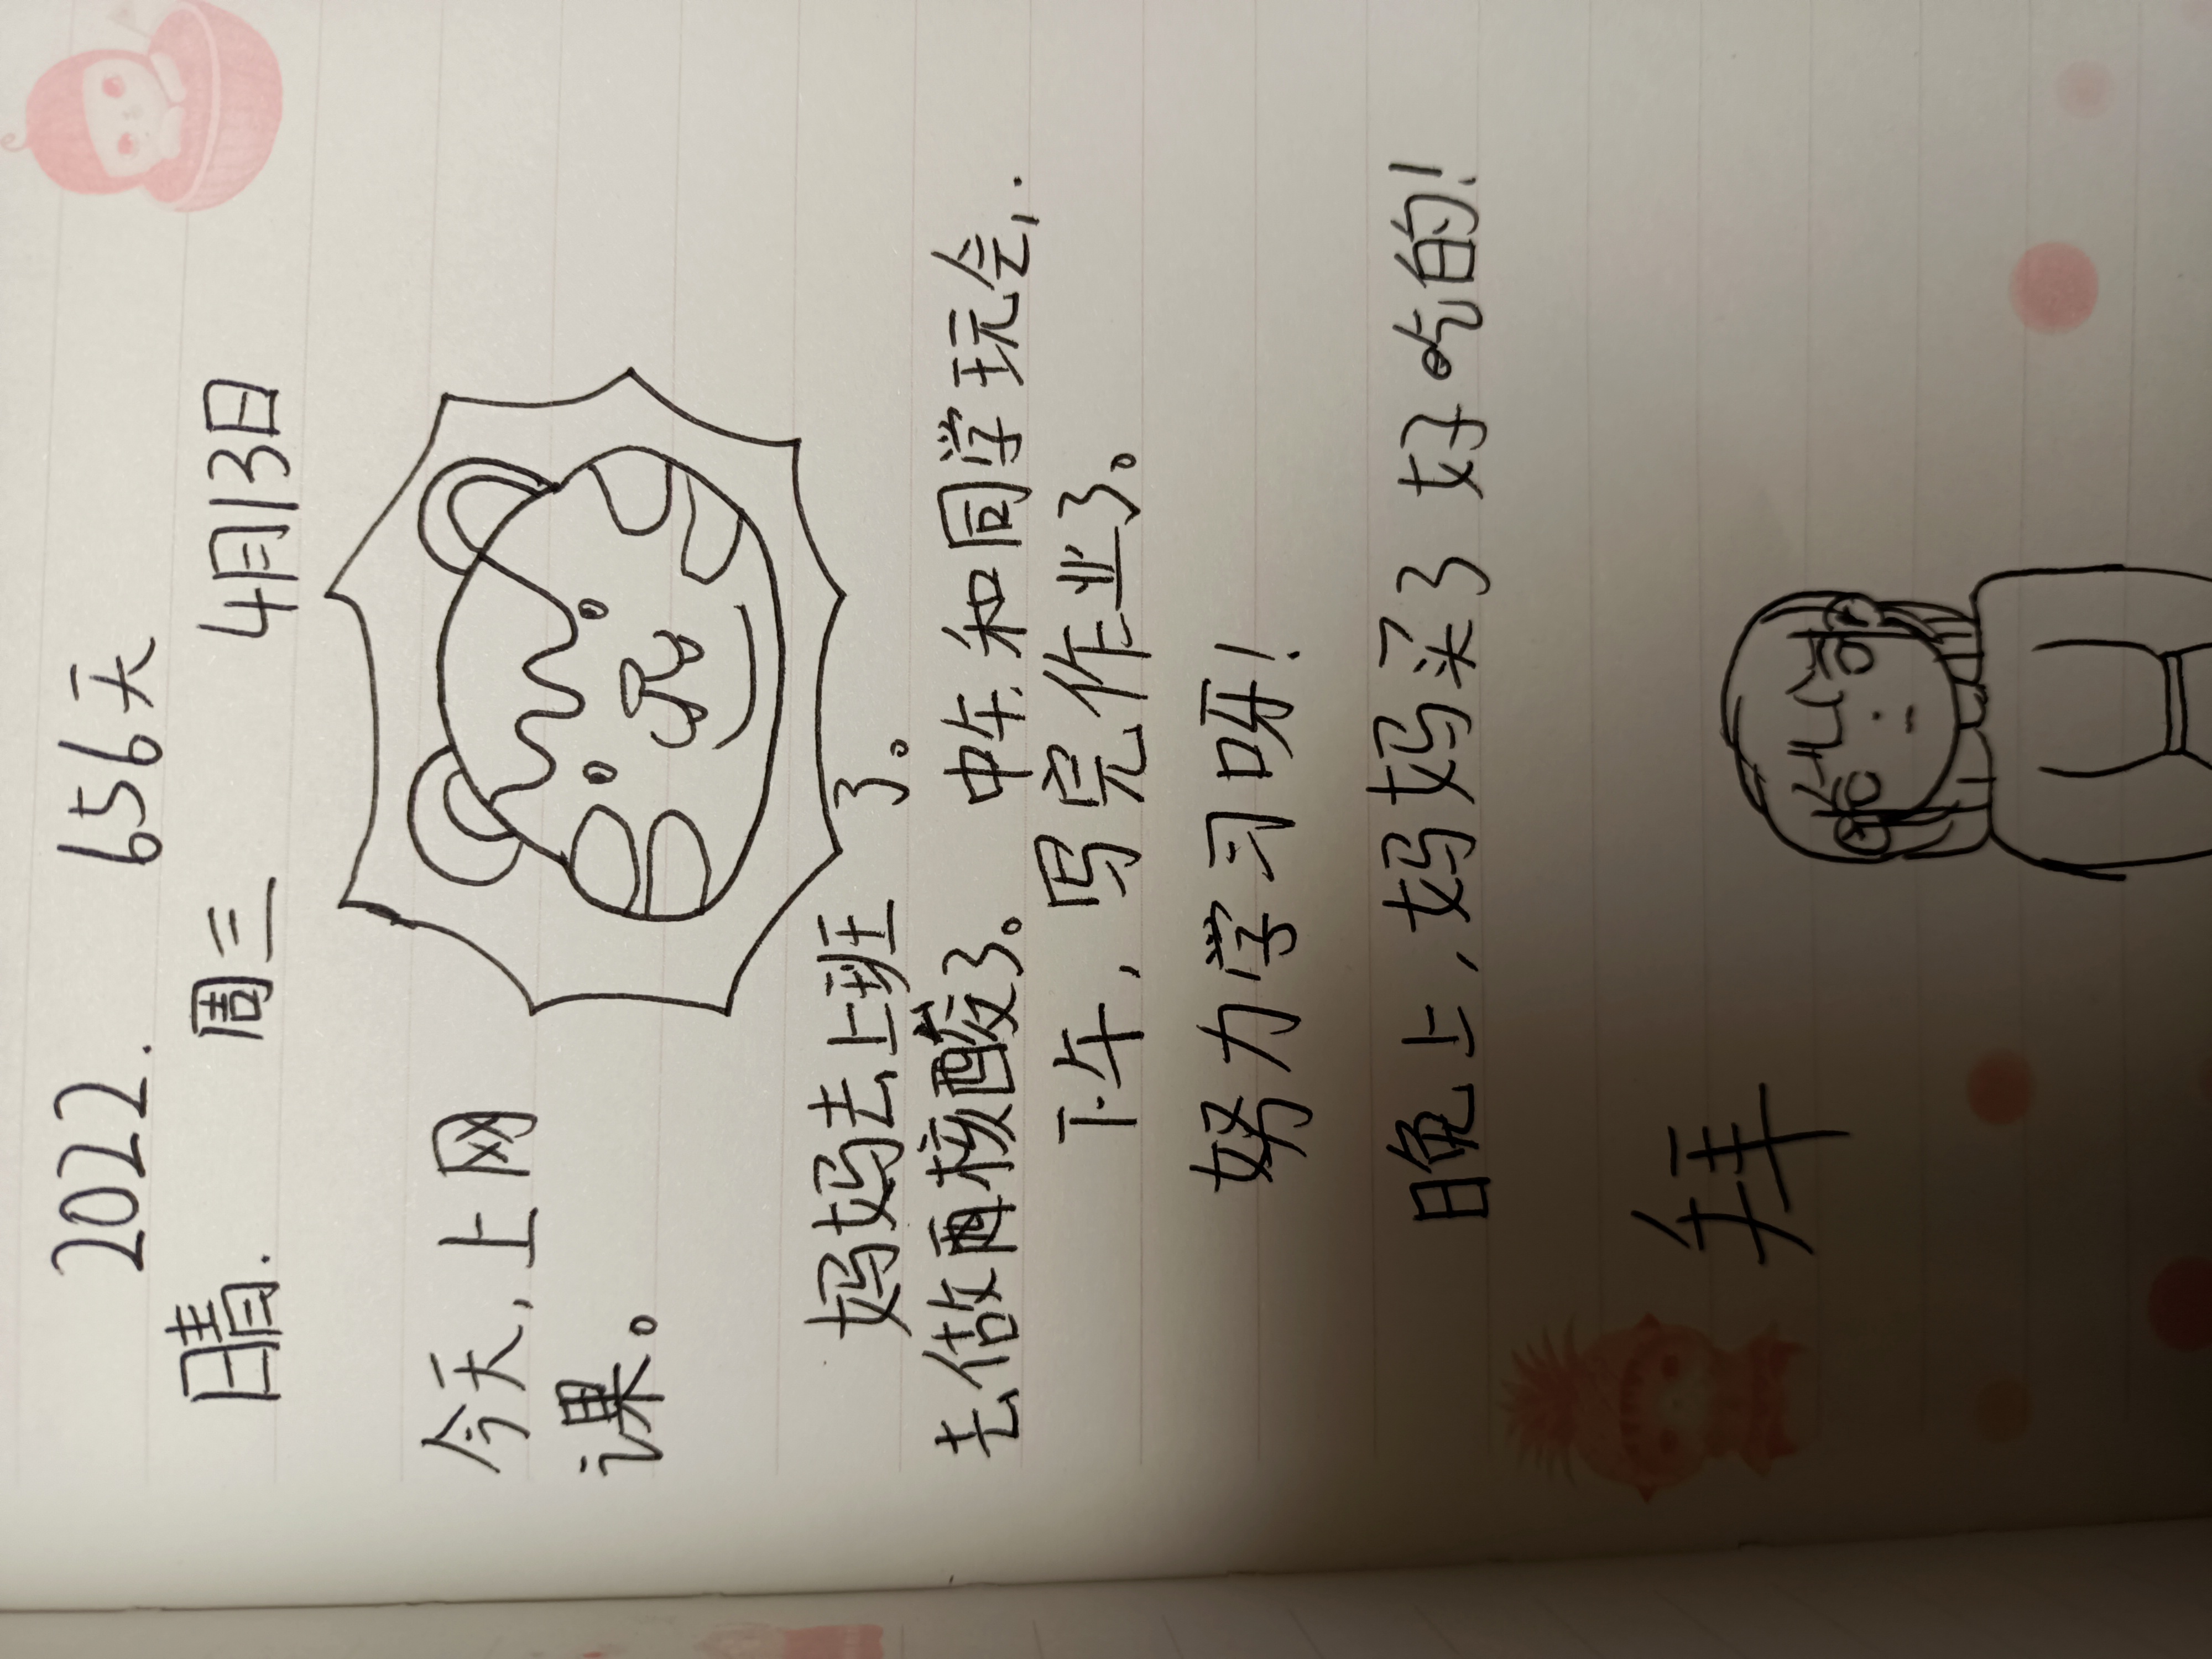 2022. 656天
晴. 周三 4月13日
今天,上网
课。
妈妈去上班了。
去做核酸了。中午和同学玩会,.
下午,写完作业了。
努力学习呀!
晚上,妈妈买了好吃的!